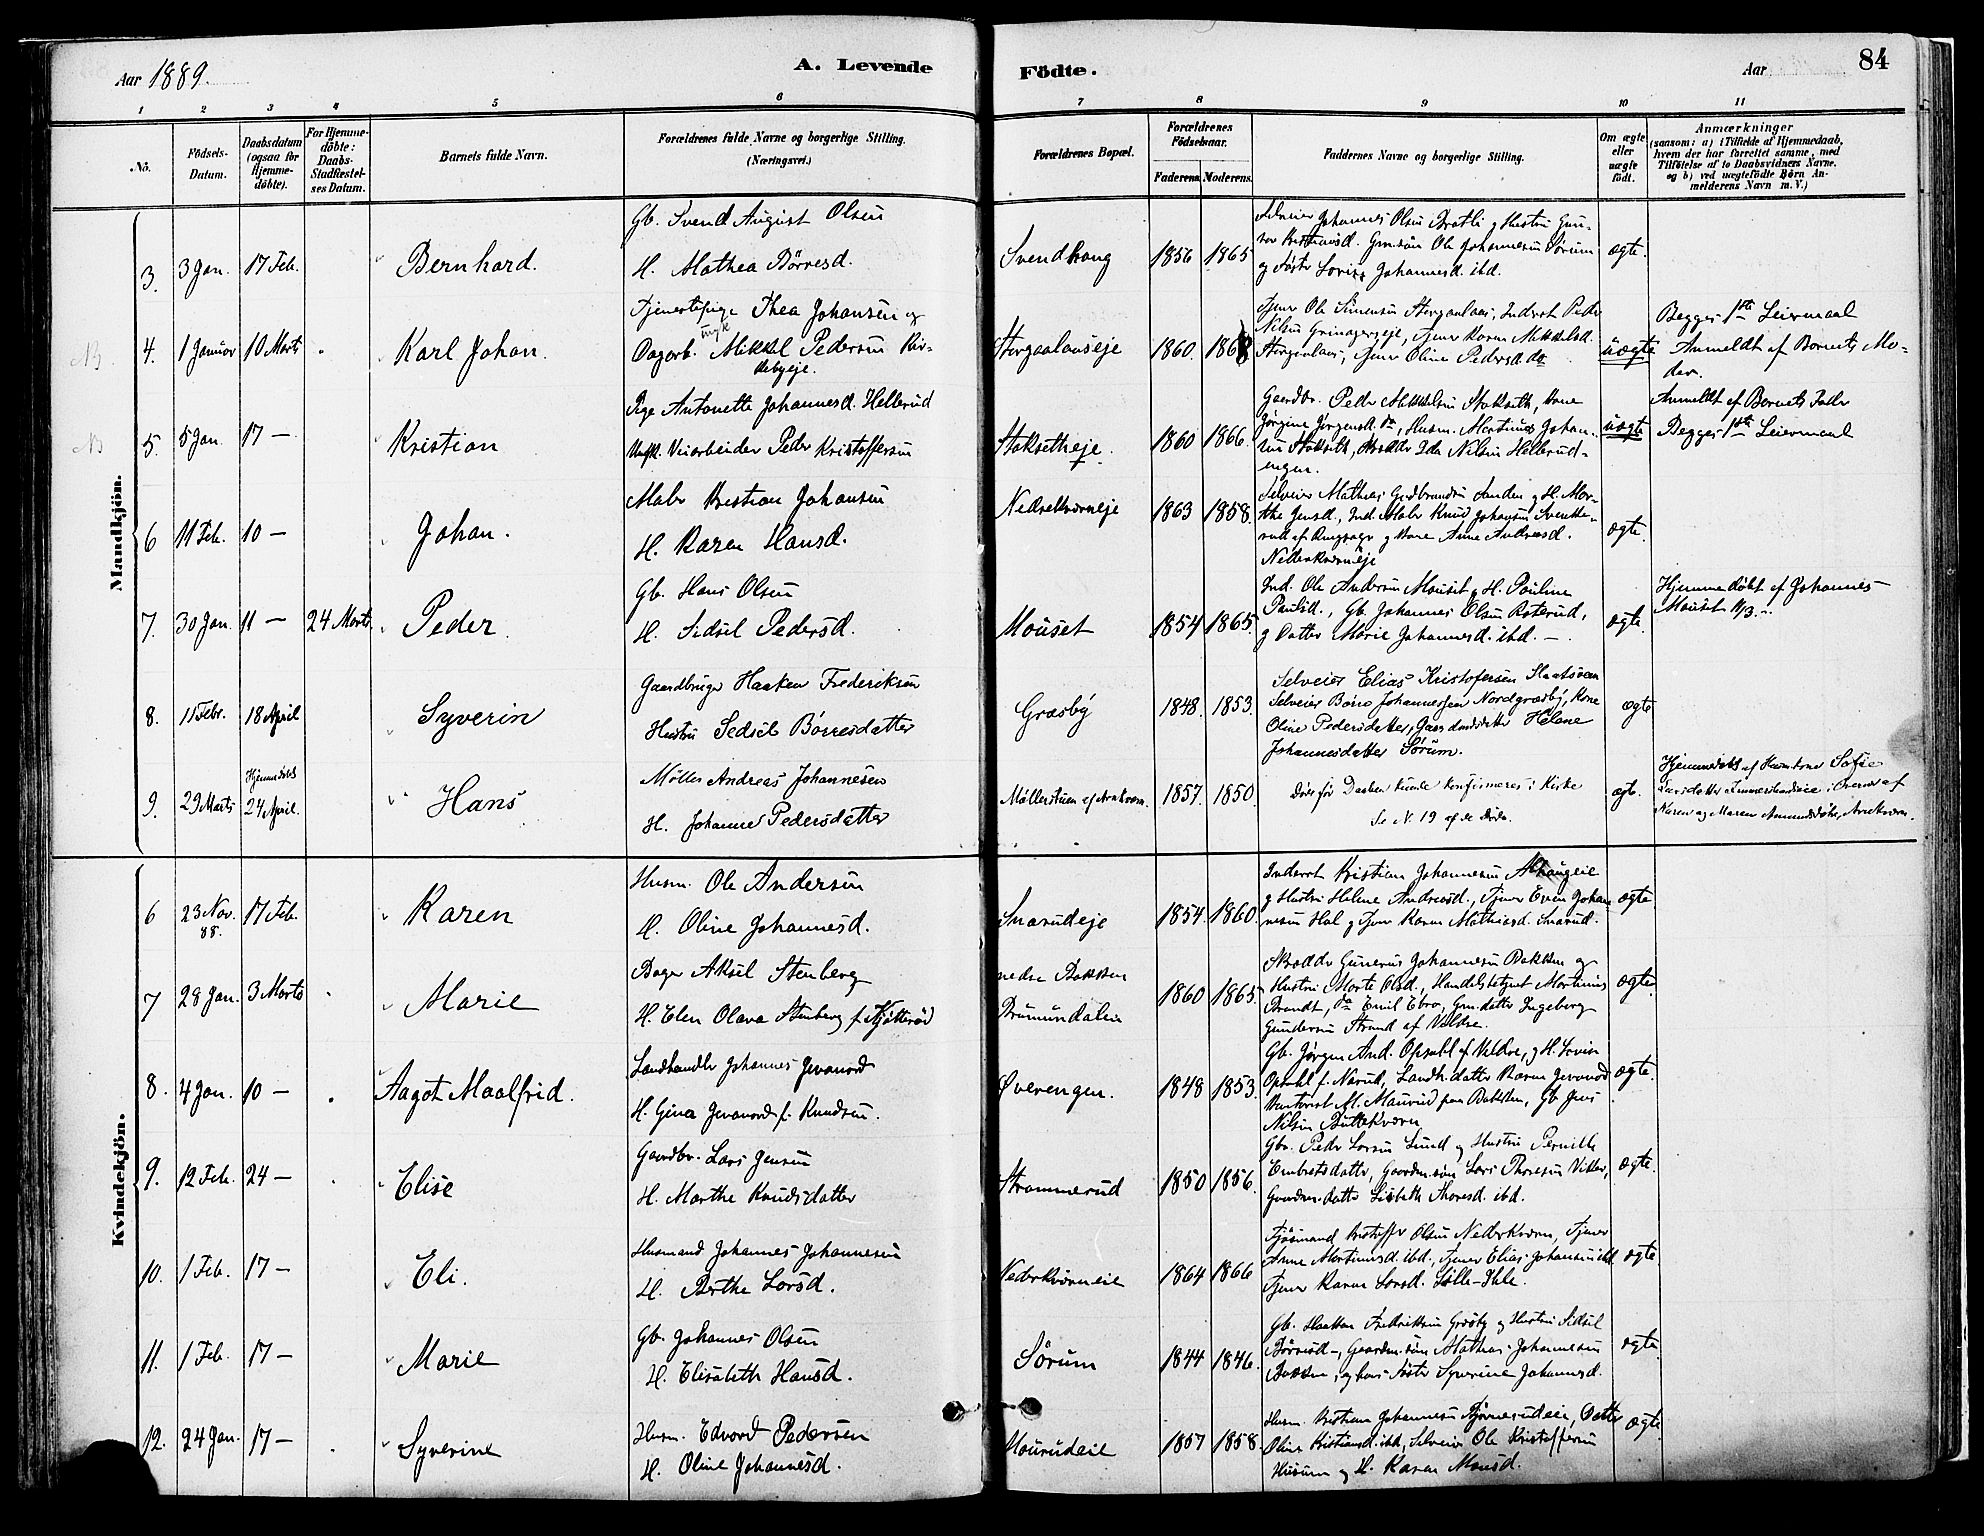 Aar 1889.
A. Levende Födte.
Aar
84
1 2 3 4 5 6 7 8 9 10 11
No.
Födsels-Datum.
Daabsdatum (ogsaa for Hjemme-döbte).
For Hjemme-döbte: Daabs-Stadfæstel-ses Datum.
Barnets fulde Navn.
Forældrenes fulde Navne og borgerlige Stilling. (Næringsvei.)
Forældrenes Bopæl.
Forældrenes Födselsaar.
Faderens. Moderens.
Faddernes Navne og borgerlige Stilling.
Om ægte eller uægte födt.
Anmærkninger
(saasom: a) i Tilfælde af Hjemmedaab,
hvem der har forrettet samme, med
Tilföielse af to Daabsvidners Navne.
og b) ved uægtefödte Börn An-
melderens Navn m. V.)
Mandkjön.
3. 3 Jan. 17 Feb. Bernhard.
Gb. Svend August Olsen
H. Mathea Börresd.
Svendhaug 1856 1865
Selveier Johannes Olsen Bratli og Hustru Gun-
Gm.søn Ole Johannesen Sørum
Johannesd. ibd.
ægte.
NB. 4. 1 Januar 10 Marts Karl Johan.
Tjenestepige Thea Johansen og
ungk
Dagarb. Mikkel Pedersen
1860 186
Tjener Ole Simensen
Nilsen
Tjener Oline Pedersd. do
uægte
Begges 1ste Leiermaal
Anmeldt af Barnets Mo-
der.
NB 5. 5 Jan. 17 — Kristian
Pige Antonette Johannesd. Hellerud
Ungk. Veiarbeider Peder Kristoffersen
Stoksetheje. 1860 1866.
Gaardbr. Peder Mikkelsen Stokseth, Kone
Jørgine Jørgensd. do, Husm. Martinus Johan-
sen Stokseth, Skrædder Nilsen Hellerud-
engen.
uægte
Anmeldt af Barnets Fader
Begges 1ste Leiermaal
6 11 Feb. 10 — Johan.
Maler Kristian Johansen
H. Karen Hansd.
Nedrekværneje 1863 1858.
Selveier Mathias Gudbrandsen Sanden og H. Mar-
the Jensd., Ind. Maler Knud Johansen
af Ringsager og Kone Anne Andreasd.
ægte.
7. 30 Jan. 11 — 24 Marts Peder.
Gb. Hans Olsen
H. Sidsel Pedersd.
Mouset 1854 1865.
Ind. Ole Andersen Mouset og H. Pauline
Paulsd., Gb. Johannes Olsen
og Datter Marie Johannesd. ibd. —
ægte
Hjemmedöbt af Johannes
Mouset 11/3.
8. 11 Febr. 18 April Syverin
Gaardbruger Haaken Frederiksen
Hustru Sedsel Börresdatter
Græsby 1848. 1853.
Selveier Elias Kristofersen
Selveier Börre Johannessen Nordgræsby, Kone
Oline Pedersdatter, Gaardmdsdatter Helene
Johannesdatter Sørum.
ægte
9. 29 Marts Hjemmedöbt 24 April. Hans
Møller Andreas Johannesen
H. Johanne Pedersdatter
Møllerstuen 1857. 1850.
Døde før Daaben kunde konfirmeres i Kirke
Se N. 19 af de Døde.
ægte.
Hjemmedöbt af Sofie
Larsdatter
Karen og Maren
Kvindekjön.
6 23 Nov. 88. 17 Feb. Karen
Husm. Ole Andersen
H. Oline Johannesd.
Snarudeje 1854 1860.
Inderst Kristian Johannesen
og Hustru Helene Andreasd., Tjener Even Johan-
nesen Hol og Tjener Karen Mathiasd. Snarud.
ægte
7 28 Jan. 3 Marts Marie
Bager Aksel Stenberg
H. Elen Olava Stenberg f.
nedre Bakken
Brumundalen
1860 1865.
Skrædder Gunerius Johannesen Bakken og
Hustru Marte Olsd., Handelsbetjent Martinus
Brandt, do Emil Ebro, Gm.datter Ingeborg
Gundersen Strand af Veldre.
ægte.
8. 4 Jan. 10 — Aagot Maalfrid.
Landhandler Johannes Jevanord
H. Gina Jevanord f. Knudsen.
Øverengen. 1848 1853.
Gb. Jørgen And. Opsahl af Veldre, og H. Lovise
Opsahl f. Narud, Landh.datter Karen Jevanord
Kontorist M. Maurud paa Bakken, Gb Jens
Nilsen
ægte.
9. 12 Feb. 24 — Elise
Gaardbr. Lars Jensen
H. Marthe Knudsdatter
Strommerud 1850 1856.
Gbr. Peder Larsen Lund og Hustru Pernille
Embretsdatter, Gaardm.søn Lars Thoresen
Gaardm.datter Lisbeth Thoresd. ibd.
ægte.
10. 1 Feb. 17 — Eli.
Husmand Johannes Johannesen
H. Berthe Larsd.
Nederkværneie 1864 1866
Fjøsmand Kristoffer Olsen Nederkværn, Tjener
Anne Martinusd. ibd., Tjener Elias Johansen ibd
Tjener Karen Larsd.
ægte.
11. 1 Feb. 17 — Marie
Gb. Johannes Olsen
H. Elisabeth Hansd.
Sørum 1844 1846.
Gb. Haaken Fredriksen Græsby og Hustru Sidsel
Börresd., Gaardm.søn Mathias Johannesen
Bakken, og hans Søster Syverine Johannesd.
ægte.
12. 24 Jan. 17 — Syverine
Husm. Edvard Pedersen
H. Oline Johannesd.
Mourudeie 1857 1858.
Husm. Kristian Johannesen Datter
Oline Kristiansd. ibd, Selveier Ole Kristoffersen
Husum og H. Karen Monsd.
ægte.